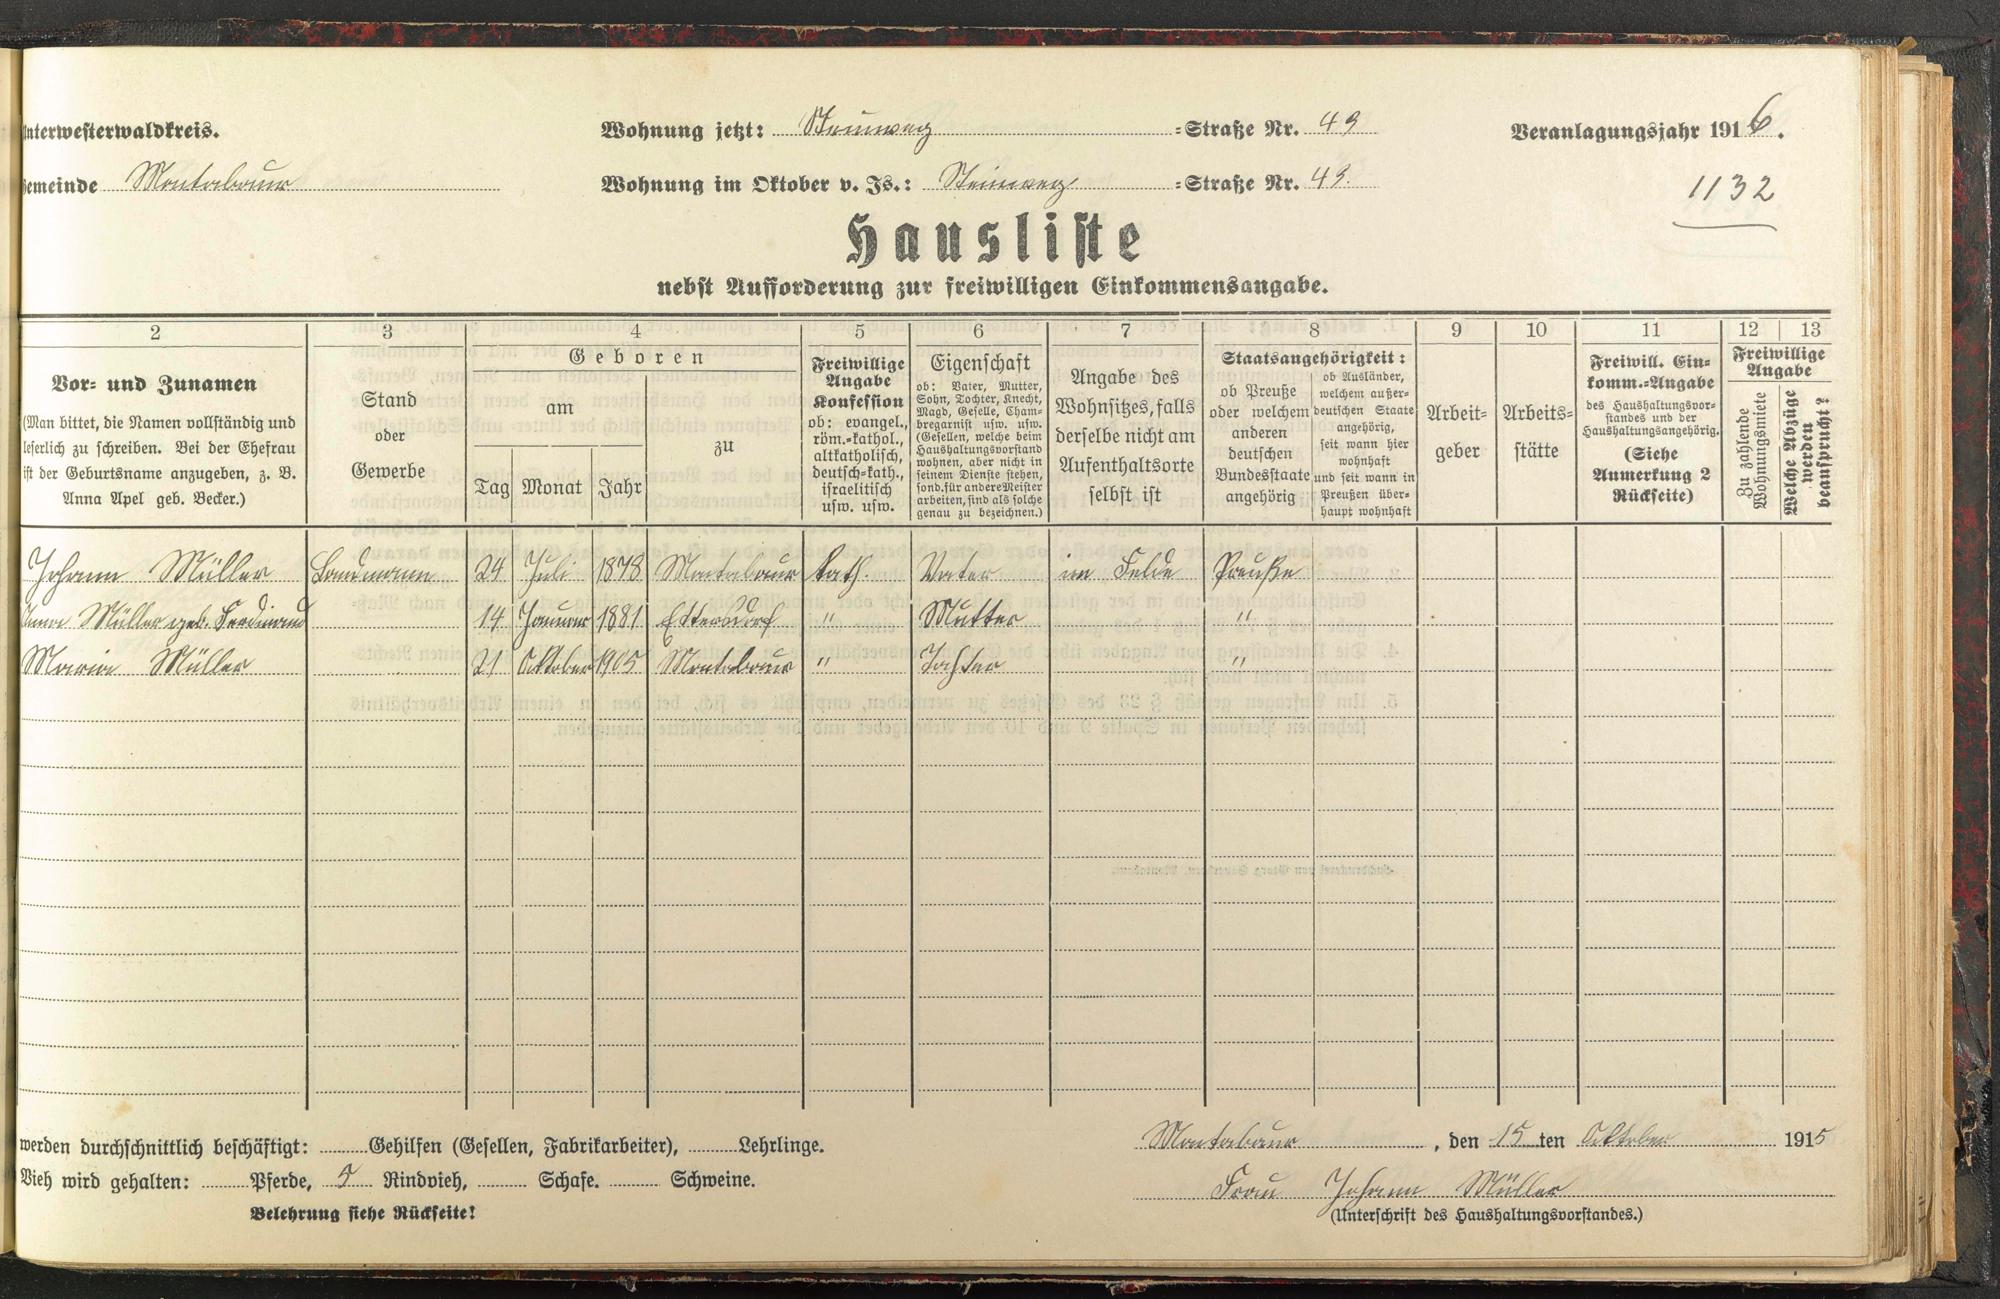 Unterwesterwaldkreis. Wohnung jetzt: Steinweg =Straße Nr. 49 Veranlagungsjahr 1916.
Gemeinde Montabaur Wohnung im Oktober v. Js.: Steinweg =Straße Nr. 49. 1132
Hausliste
nebst Aufforderung zur freiwilligen Einkommensangabe.
2 3 4 5 6 7 8 9 10 11 12 13
Vor= und Zunamen
(Man bittet, die Namen vollständig und
leserlich zu schreiben. Bei der Ehefrau
ist der Geburtsname anzugeben, z. B.
Anna Apel geb. Becker.)
Stand
oder
Gewerbe
Geboren
am
Tag Monat Jahr
zu
Freiwillige
Angabe
Konfession
ob: evangel.,
röm.=kathol.,
altkatholisch,
deutsch=kath.,
israelitisch
usw. usw.
Eigenschaft
ob: Vater, Mutter,
Sohn, Tochter, Knecht,
Magd, Geselle, Cham=
bregarnist usw. usw.
(Gesellen, welche beim
Haushaltungsvorstand
wohnen, aber nicht in
seinem Dienste stehen,
sond. für andere Meister
arbeiten, sind als solche
genau zu bezeichnen.)
Angabe des
Wohnsitzes, falls
derselbe nicht am
Aufenthaltsorte
selbst ist
Staatsangehörigkeit:
ob Preuße
oder welchem
anderen
deutschen
Bundesstaate
angehörig
ob Ausländer,
welchem außer=
deutschen Staate
angehörig,
seit wann hier
wohnhaft
und seit wann in
Preußen über=
haupt wohnhaft
Arbeit=
geber
Arbeits=
stätte
Freiwill. Ein=
komm.=Angabe
des Haushaltungsvor=
standes und der
Haushaltungsangehörig.
(Siehe
Anmerkung 2
Rückseite)
Freiwillige
Angabe
Zu zahlende
Wohnungsmiete
Welche Abzüge
werden
beansprucht?
Johann Müller Landmann 24 Juli 1878 Montabaur kath. Vater im Felde Preuße
Anna Müller geb. Ferdinand 14 Januar 1881 Ettersdorf " Mutter "
Maria Müller 21 Oktober 1905 Montabaur " Tochter "
werden durchschnittlich beschäftigt: Gehilfen (Gesellen, Fabrikarbeiter), Lehrlinge. Montabaur, den 15ten Oktober 1915
Vieh wird gehalten: Pferde, 5 Rindvieh, Schafe. Schweine. Frau Johann Müller
Belehrung siehe Rückseite! (Unterschrift des Haushaltungsvorstandes.)